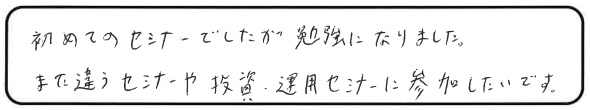 初めてのセミナーでしたが勉強になりました。
また違うセミナーや投資・運用セミナーに参加したいです。